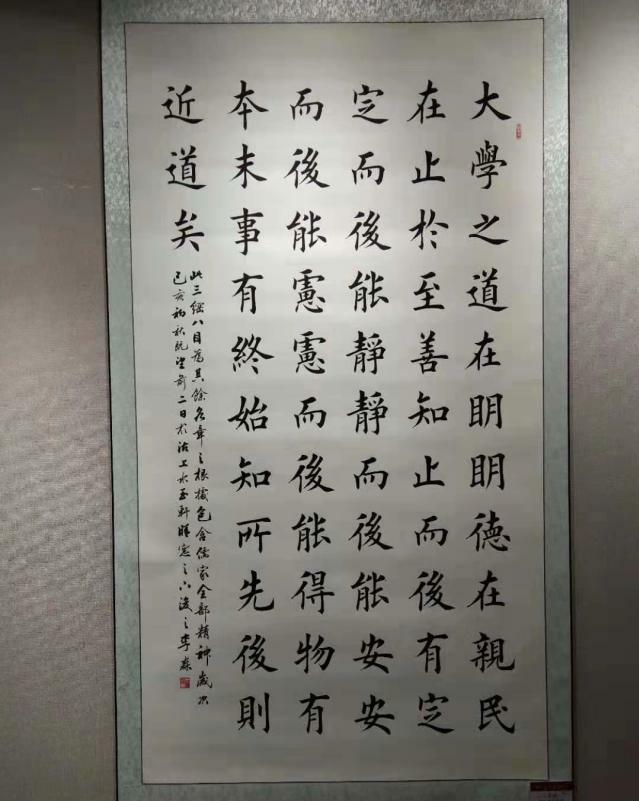 大學之道在眀眀德在親民
在止於至善知止而後有定
定而後能靜靜而後能安安
而後能慮慮而後能得物有
夲末事有終始知所先後則
近道矣
此三綱八目爲其餘各章之根據包含儒家全部精神歲次
己亥初秋既望前二日於沽上玉軒窓之下浚之李森